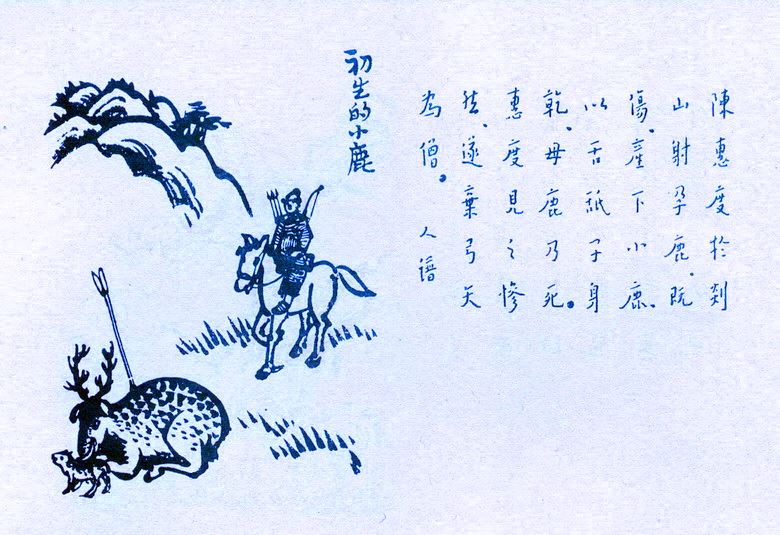 初生的小鹿
陳惠度於剡
山射孕鹿。既
傷。產下小鹿。
以舌舐子身
乾、母鹿乃死。
惠度見之慘
然、遂棄弓矢
為僧。 人譜